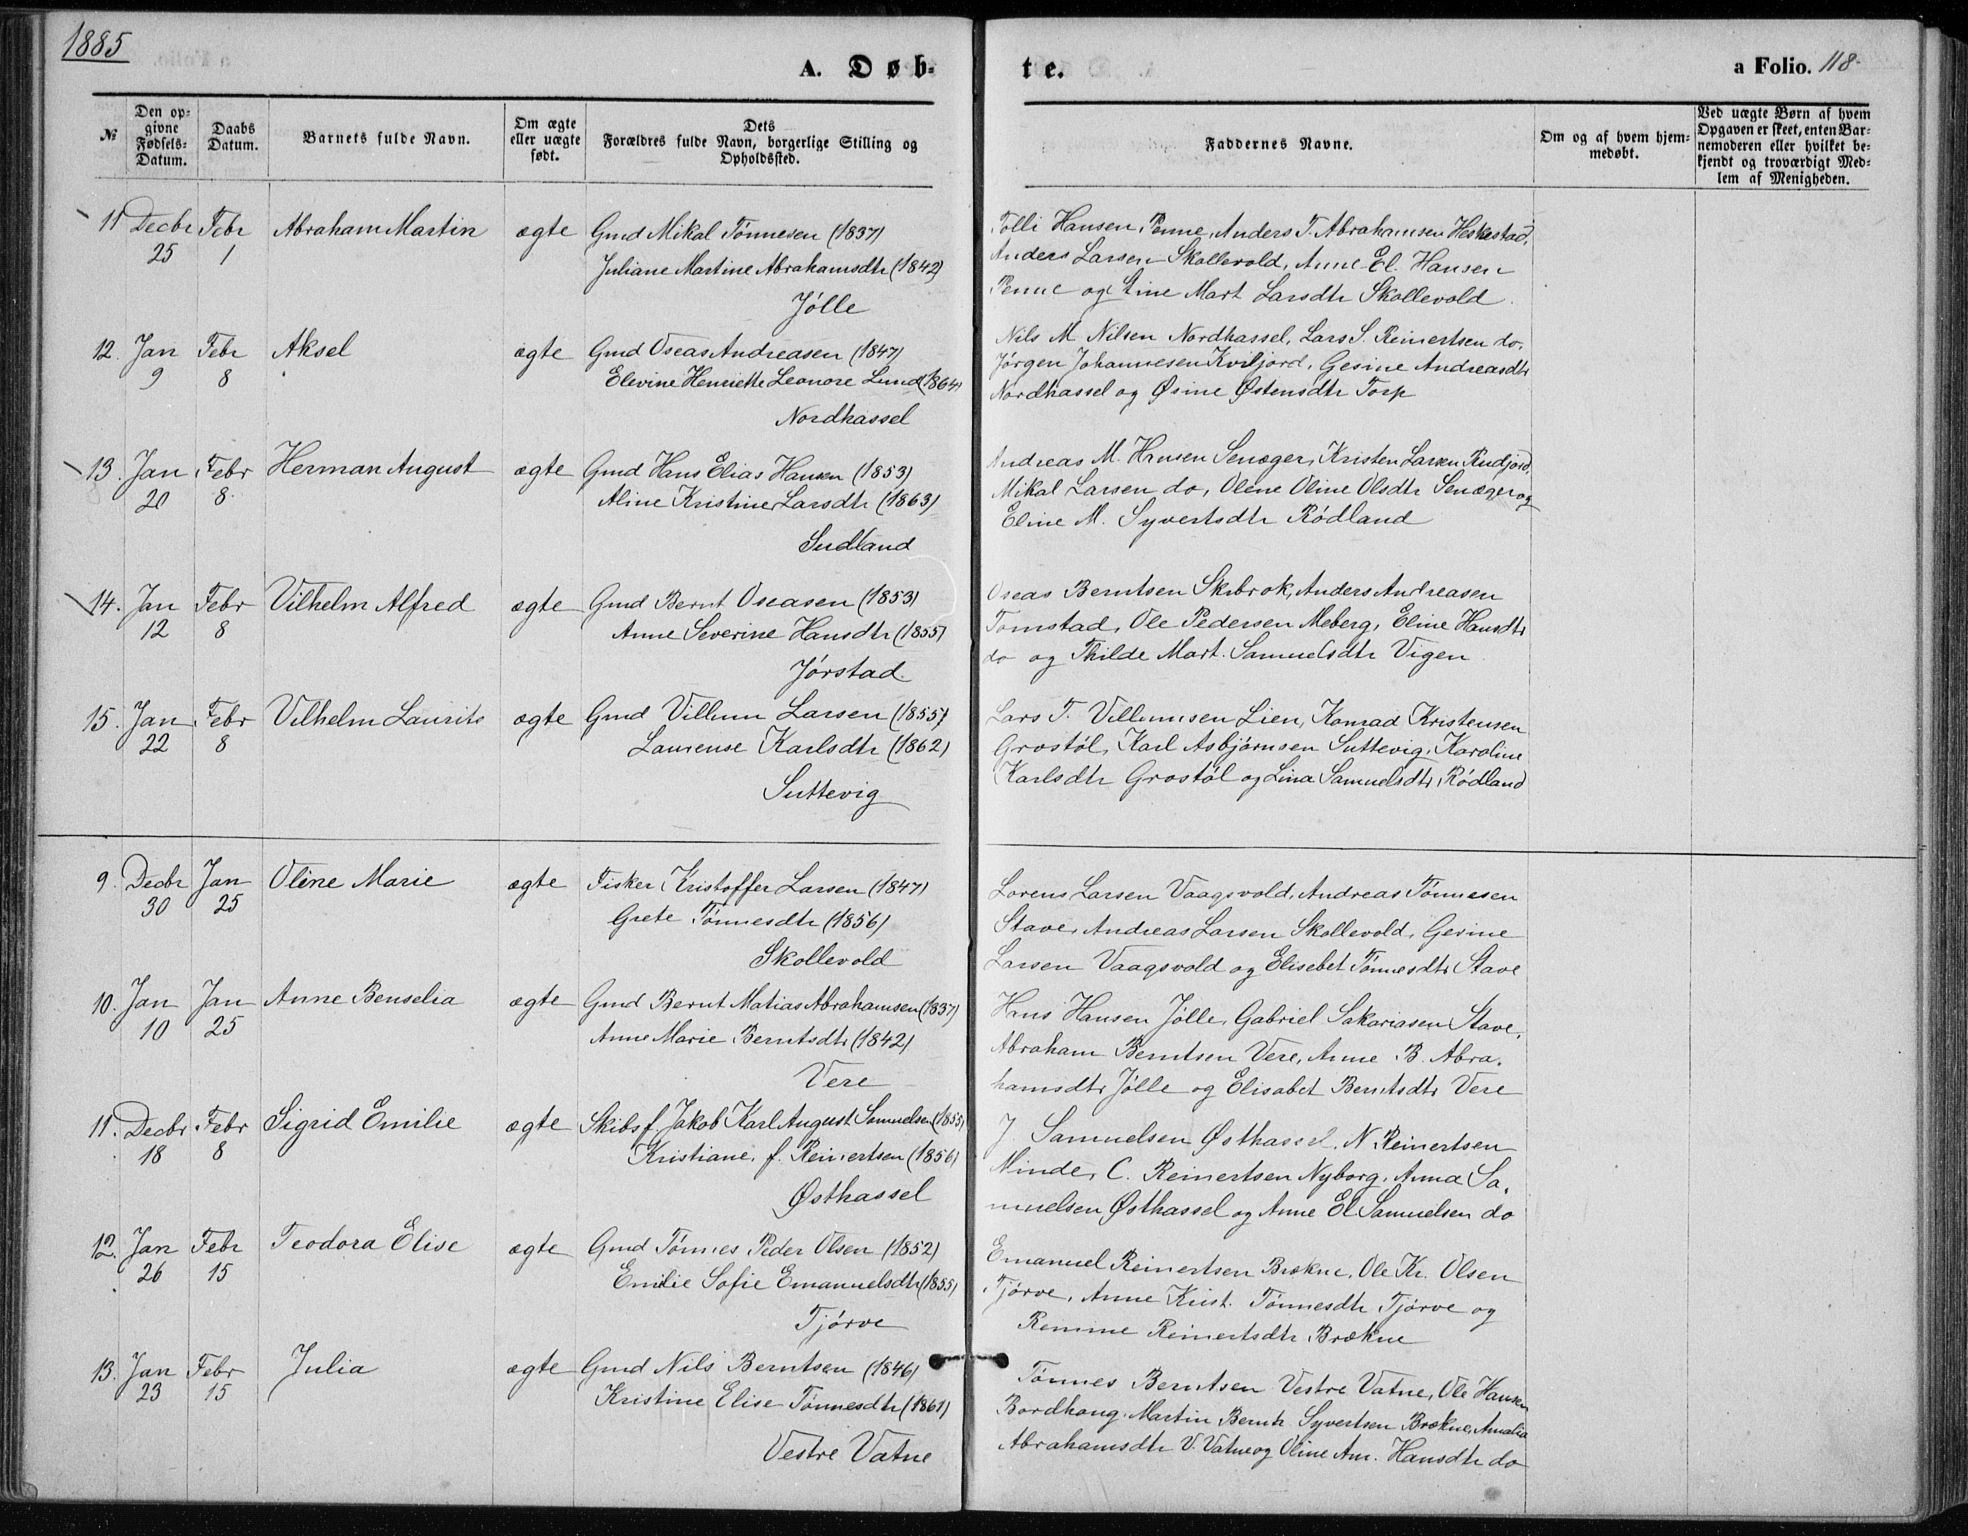 1885
A. Døb-
te.
a Folio. 118.
№
Den op-
givne
Fødsels-
Datum.
Daabs
Datum.
Barnets fulde Navn.
Om ægte
eller uægte
født.
Dets
Forældres fulde Navn, borgerlige Stilling og
Opholdssted.
Faddernes Navne.
Om og af hvem hjem-
medøbt.
Ved uægte Børn af hvem
Opgaven er skeet, enten Bar-
nemoderen eller hvilket be-
kjendt og troværdigt Med-
lem af Menigheden.
11 Decbr Febr Abraham Martin ægte Gmd Mikal Tönnesen (1837)
25 1 Juliane Martine Abrahamsdtr (1842)
Jölle
Tolli Hansen Penne, Anders T. Abrahamsen Heskestad,
Anders Larsen Skollevold, Anne El. Hansen
Penne og Stine Mart Larsdtr Skollevold
12. Jan Febr Aksel ægte Gmd Oseas Andreasen (1847)
9 8 Elevine Henriette Leonore Lund (1864)
Nordhassel
Nils M Nilsen Nordhassel, Lars S. Reinertsen do,
Jörgen Johannesen Kviljord, Gesine Andreasdtr
Nordhassel og Øsine Østensdtr Torp
13. Jan Febr Herman August ægte Gmd Hans Elias Hansen (1853)
20 8. Aline Kristine Larsdtr (1863)
Sudland
Andreas M. Hansen Senæger, Kristen Larsen Rudjord,
Mikal Larsen do, Olene Oline Olsdtr Senæger og
Eline M. Syvertsdtr Rödland
14. Jan Febr Vilhelm Alfred ægte Gmd Bernt Oseasen (1853)
12 8 Anne Severine Hansdtr (1855)
Jörstad.
Oseas Berntsen Skibrok, Anders Andreasen
Tomstad, Ole Pedersen Meberg, Eline Hansdtr
do og Thilde Mart. Samuelsdtr Vigen
15. Jan Febr Vilhelm Laurits ægte Gmd Villum Larsen (1855)
22 8 Laurense Karlsdtr (1862)
Suttevig
Lars T. Villumsen Lien, Konrad Kristensen
Grostöl, Karl Asbjörnsen Suttevig, Karoline
Karlsdtr Grostöl og Lina Samuelsdtr Rödland
9. Decbr Jan Oline Marie ægte Fisker Kristoffer Larsen (1847)
30 25 Grete Tönnesdtr (1856)
Skollevold
Lorens Larsen Vaagsvold, Andreas Tönnesen
Stave, Andreas Larsen Skollevold, Gerine
Larsen Vaagsvold og Elisebet Tönnesdtr Stave
10. Jan Jan Anne Benselia ægte Gmd Bernt Matias Abrahamsen (1837)
10 25 Anne Marie Berntsdtr (1842)
Vere
Hans Hansen Jölle, Gabriel Sakariasen Stave,
Abraham Berntsen Vere, Anne B. Abra-
hamsdtr Jölle og Elisabet Berntsdtr Vere
11. Decbr Febr Sigrid Emilie ægte Skibsf. Jakob Karl August Samuelsen (1855)
18 8 Kristiane f. Reinertsen (1856)
Østhassel
J. Samuelsen Østhassel, N. Reinertsen
Minde, C. Reinertsen Nyborg, Anna Sa-
muelsen Østhassel og Anne El Samuelsen do
12. Jan Febr Teodora Elise ægte Gmd Tönnes Peder Olsen (1852)
26 15 Emilie Sofie Emanuelsdtr (1855)
Tjörve
Emanuel Reinertsen Brækne, Ole Kr. Olsen
Tjörve, Anne Krist. Tönnesdtr Tjörve og
Remine Reinertsdtr Brækne
13. Jan Febr Julia ægte Gmd Nils Berntsen (1846)
23 15 Kristine Elise Tönnesdtr (1861)
Vestre Vatne
Tönnes Berntsen Vestre Vatne, Ole Hansen
Bordhoug, Martin Bernt Syvertsen Brækne, Amalia
Abrahamsdtr V. Vatne og Oline Am. Hansdtr do